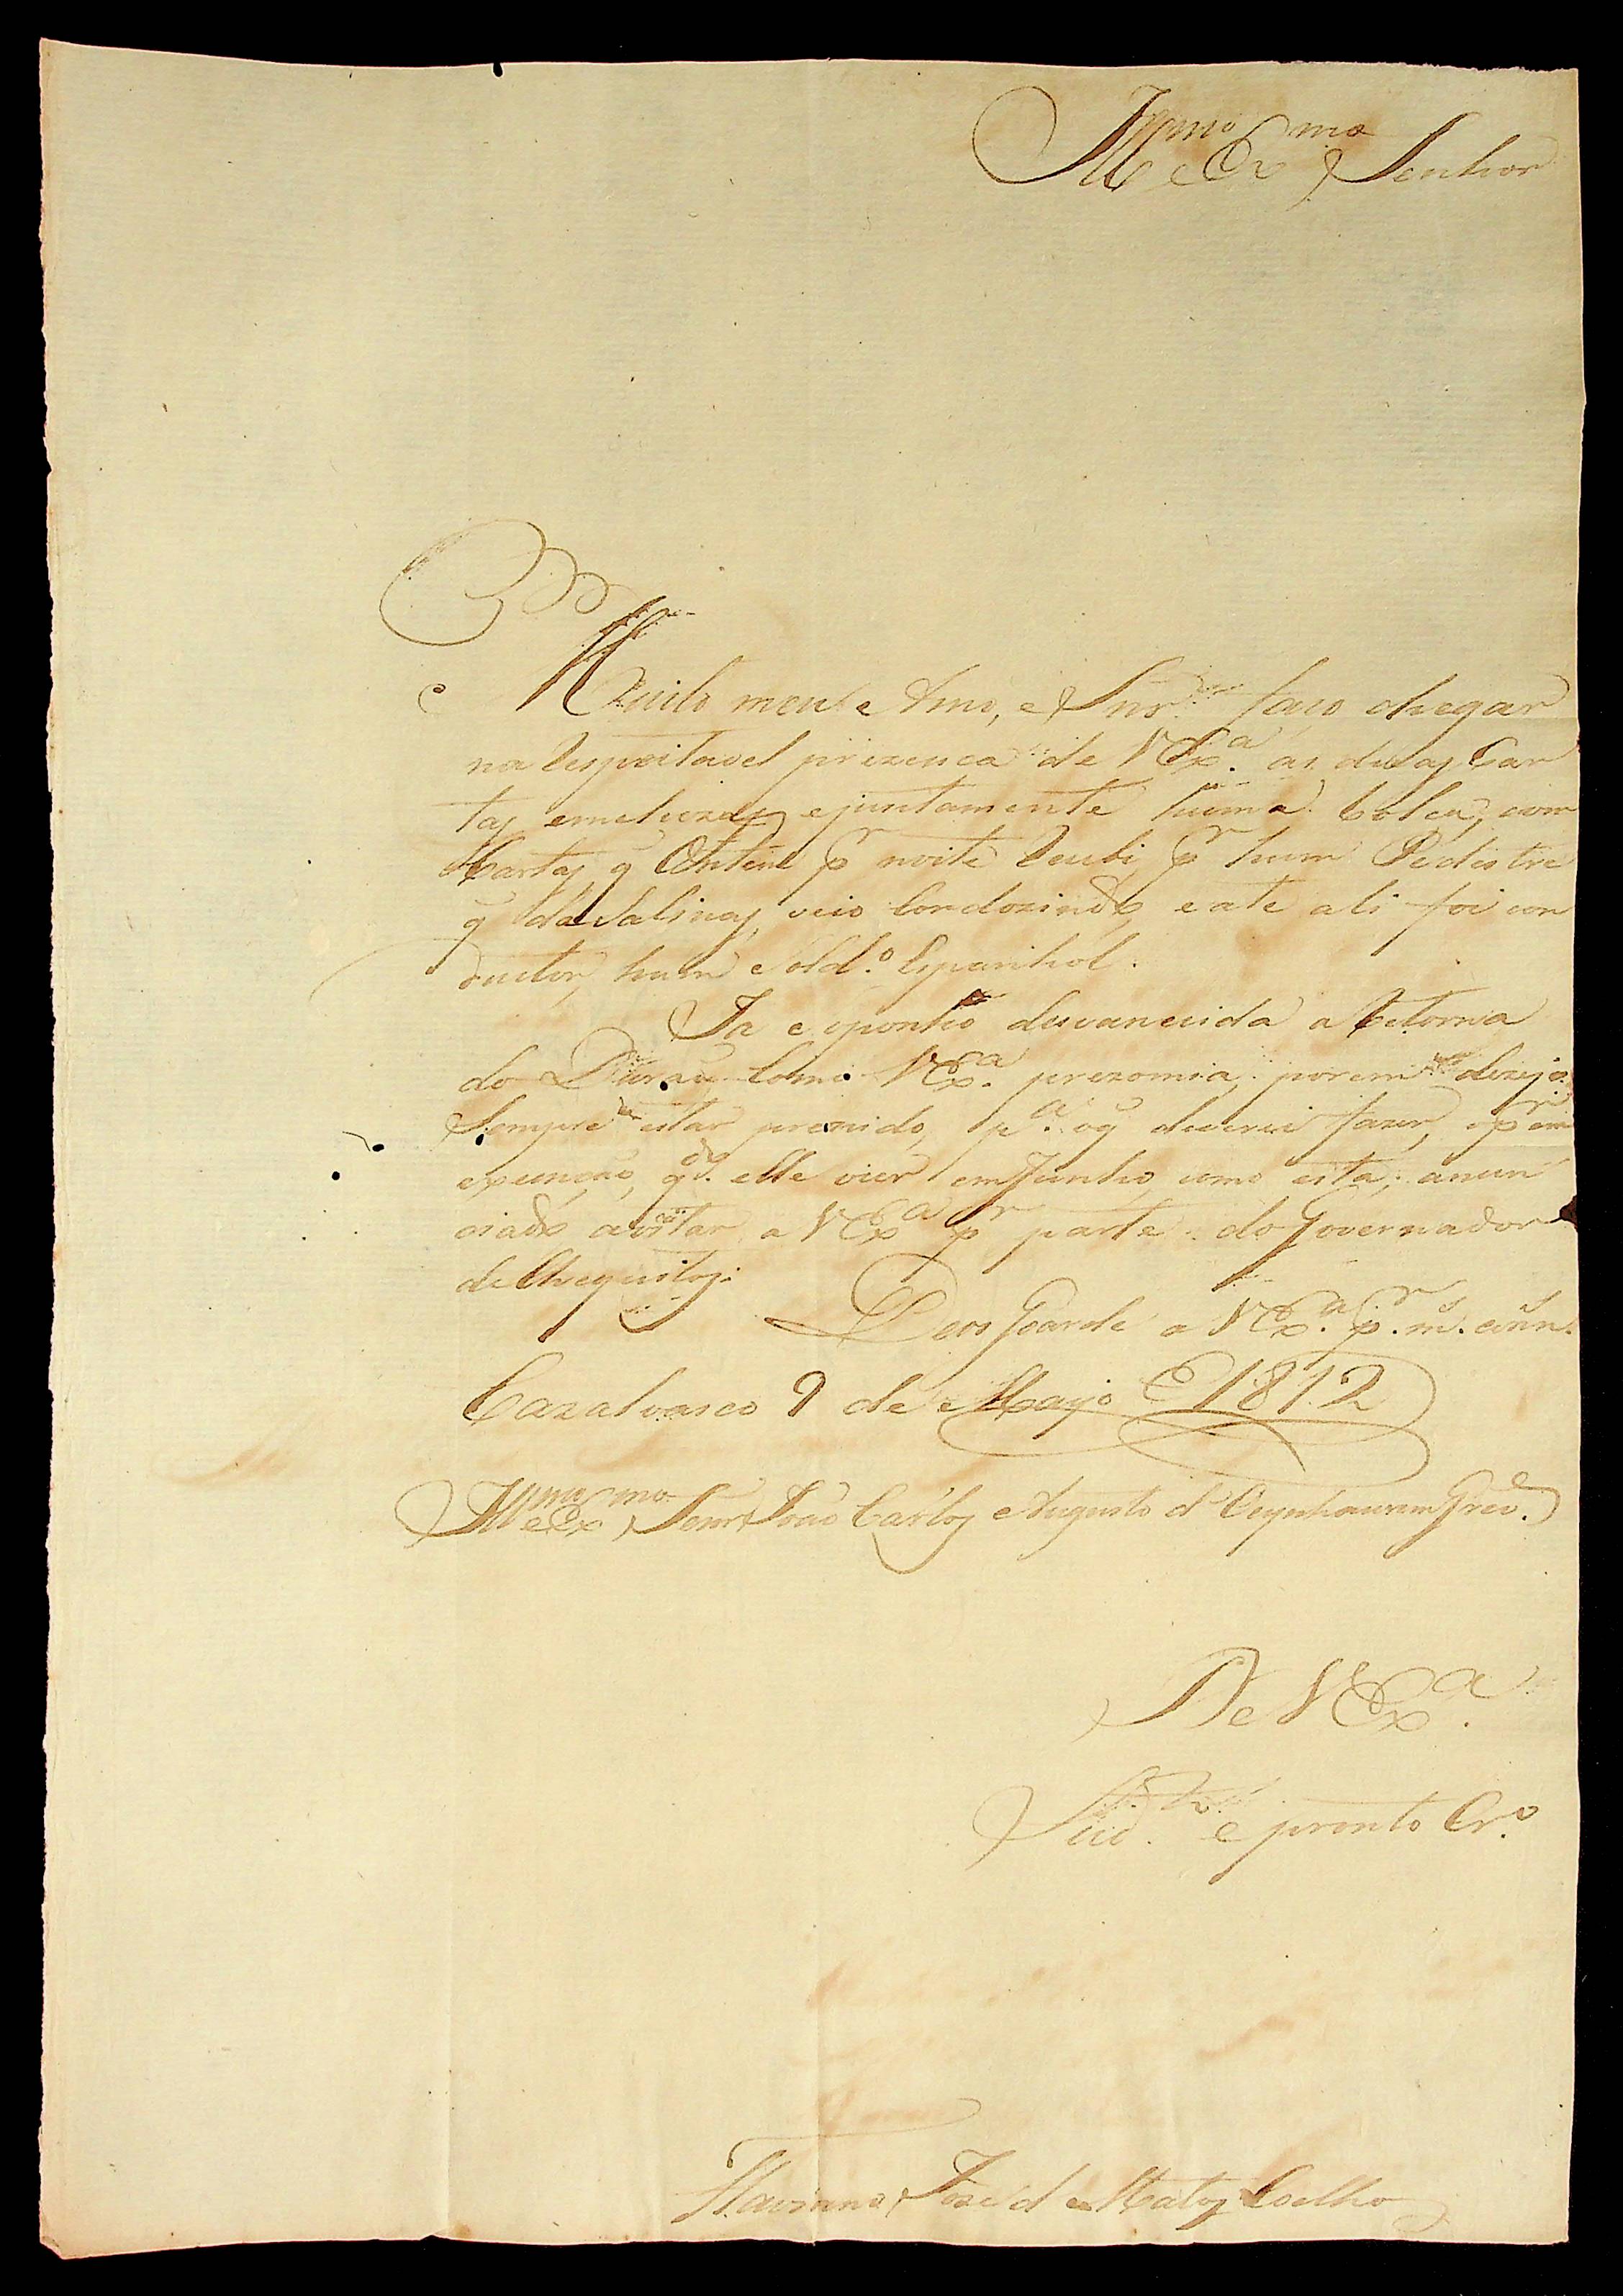 Illmo e Exmo Senhor
Muito meu Amo, e Snr. faço chegar
na respeitavel prezenca de VExa. as duas Car
tas emcluzas, e juntamente huma bolca, com
Cartas q̃ Ontem pr noite recubi pr hum Pedestre
q̃ da Salinas, veio Condozindo, e ate ali foi con
ductor, hum Sold.o Espanhol.
Ja suponho desvanecida a retorna
do Durau Como VExa. prezomia, porem dezejo
Sempre estar prevenido, pa. oq̃ deverei fazer, pr em
execução, qdo. elle vier em Junho, como esta, anun
ciado a vizitar a VExa pr parte do Governador
de Chequitos.
Deos Goarde a VExa. pr. ms. anns.
Cazalvasco 9 de Mayo de 1812
Illmo e Exmo Senr João Carlos Augusto d'Oeynhausen Greo.
De VExa.
Sudto. e pronto Cro.
Flaviano Joze de Matos Coelho